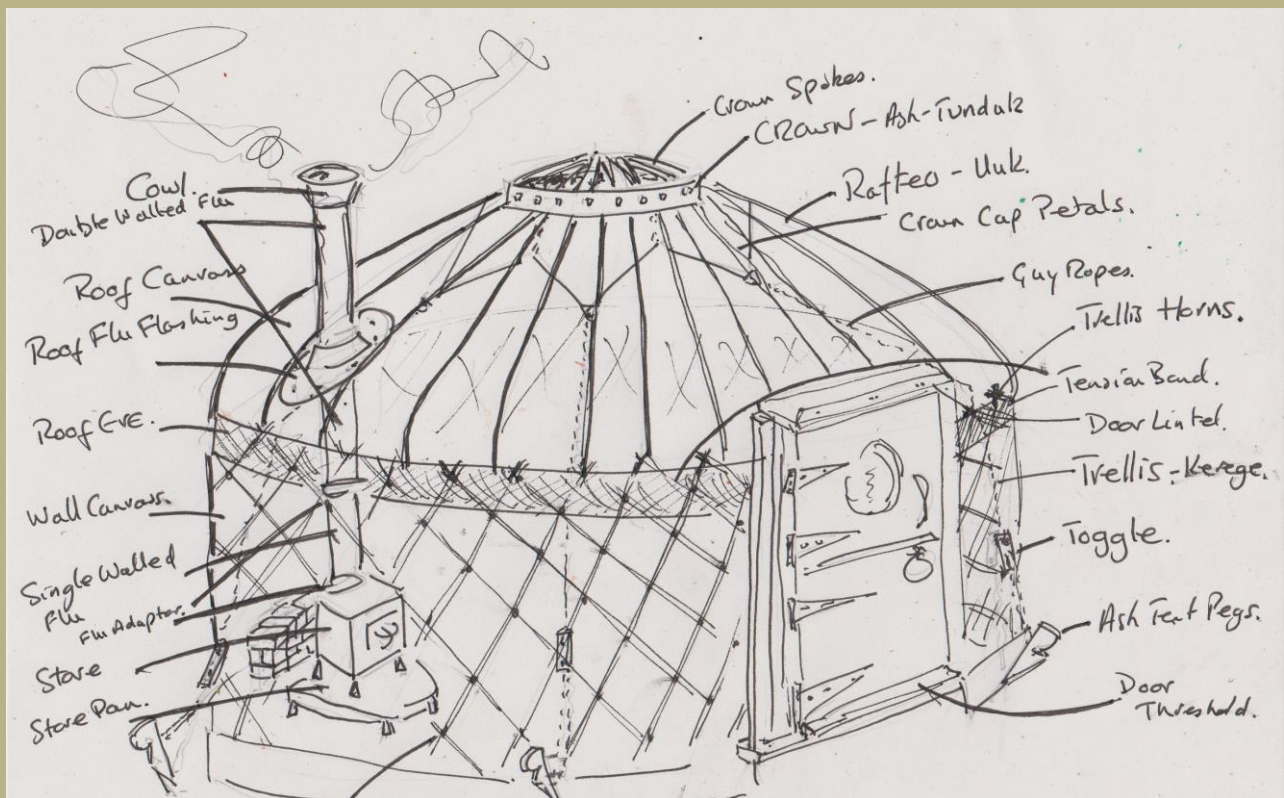 Cowl.
Double Walled Flu
Roof Canvass
Roof Flu Flashing
Roof Eve.
Wall Canvass.
Single Walled
Flu
Flu Adaptor.
Stove
Stove Pan.
Crown Spokes.
CROWN - Ash - Tunduk
Rafteo - Uuk.
Crown Cap Petals.
Guy Ropes.
Trellis Horns.
Tension Band.
Door Lintel.
Trellis - Kerege.
Toggle.
Ash Tent Pegs.
Door
Threshold.